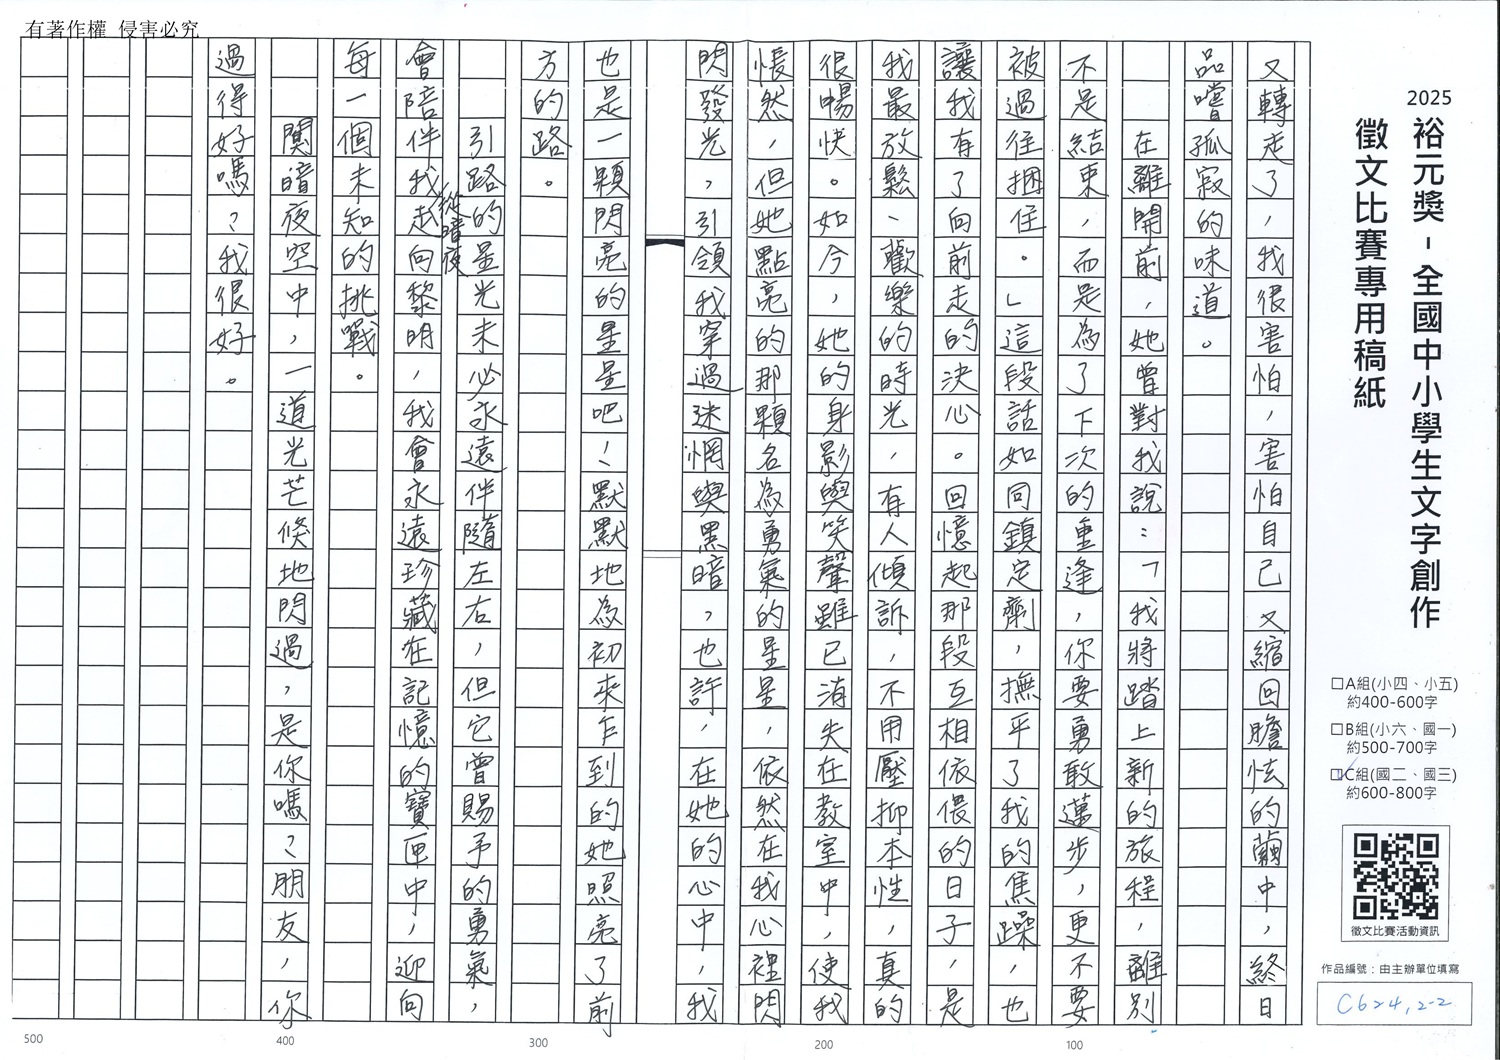 有著作權 侵害必究
2025
裕元獎-全國中小學生文字創作
徵文比賽專用稿紙
□A組(小四、小五)
約400-600字
□B組(小六、國一)
約500-700字
□C組(國二、國三)
約600-800字
徵文比賽活動資訊
作品編號：由主辦單位填寫
C624,2-2
又轉走了，我很害怕，害怕自己又縮回膽怯的繭中，終日
品嚐孤寂的味道。
在離開前，她曾對我說：「我將踏上新的旅程，離別
不是結束，而是為了下次的重逢，你要勇敢邁步，更不要
被過往捆住。」這段話如同鎮定劑，撫平了我的焦躁，也
讓我有了向前走的決心。回憶起那段互相依偎的日子，是
我最放鬆、歡樂的時光，有人傾訴，不用壓抑本性，真的
很暢快。如今，她的身影與笑聲雖已消失在教室中，使我
悵然，但她點亮的那顆名為勇氣的星星，依然在我心裡閃
閃發光，引領我穿過迷惘與黑暗，也許，在她的心中，我
也是一顆閃亮的星星吧！默默地為初來乍到的她照亮了前
方的路。
引路的星光未必永遠伴隨左右，但它曾賜予的勇氣，
會陪伴我從暗夜走向黎明，我會永遠珍藏在記憶的寶匣中，迎向
每一個未知的挑戰。
闃暗夜空中，一道光芒倏地閃過，是你嗎？朋友，你
過得好嗎？我很好。
100
200
300
400
500